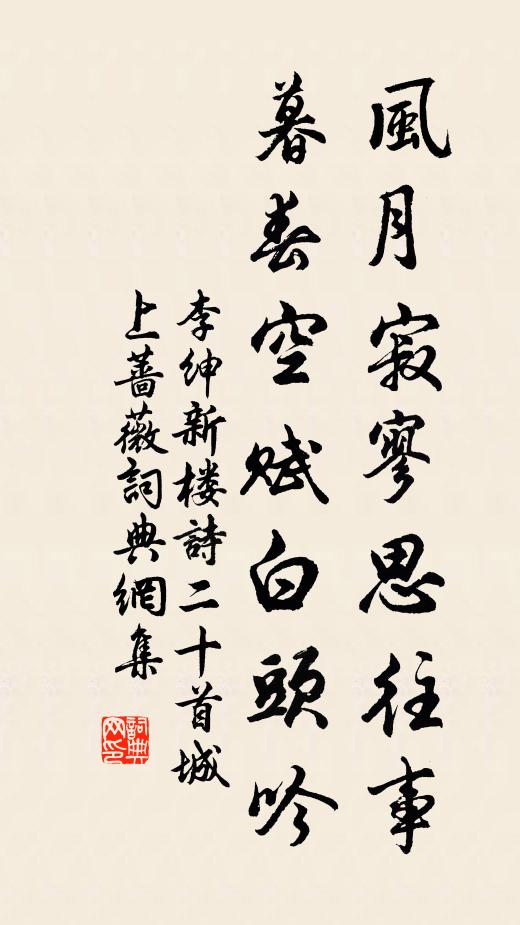 風月寂寥思往事
暮春空賦白頭吟
李紳新楼詩二十首城
上薔薇詞典網集
詞典
网印